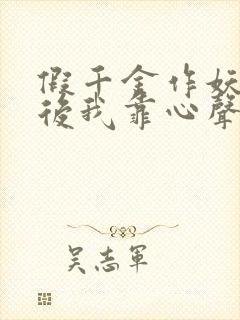 假千金作妖
後我靠心聲
吴志軍